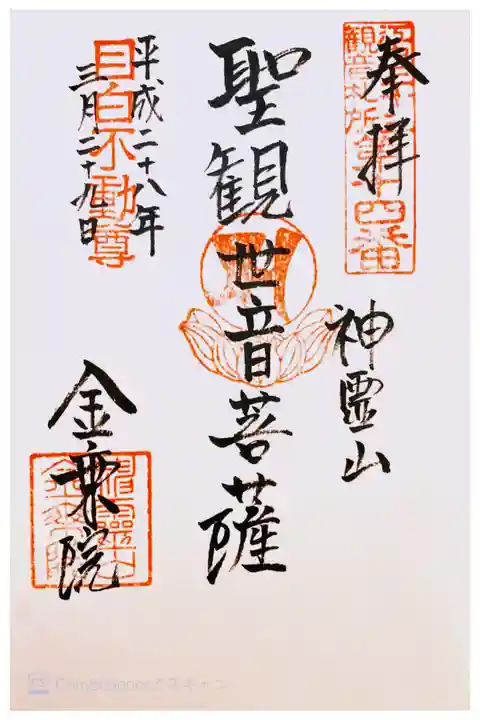 奉拝
神霊山
聖観世音菩薩
平成二十八年
三月二十九日
目白不動尊
金乗院
CamScannerでスキャン